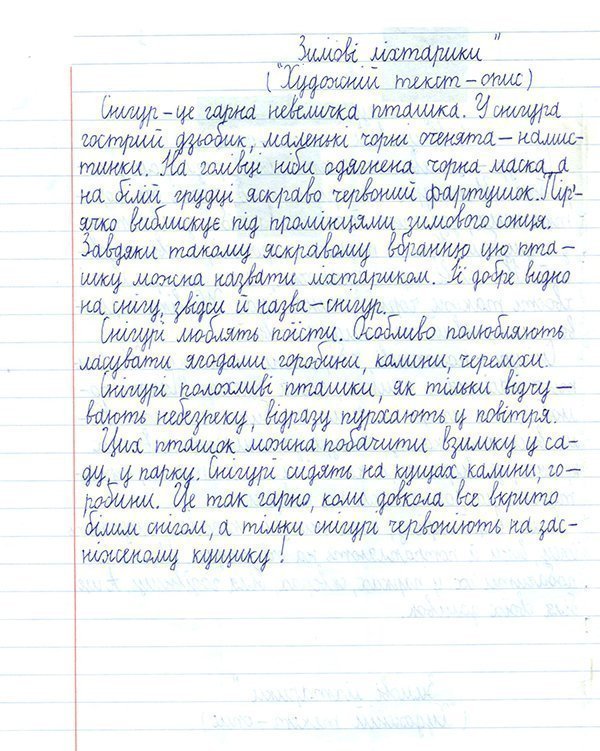 Зимові ліхтарики"
("Художній текст-опис)
Снігур-це гарна невеличка пташка. У снігура
гострий дзьобик, маленькі чорні оченята-намис-
тинки. На голівці ніби одягнена чорна маска, а
на білій грудці яскраво червоний фартушок. Пір'-
ячко виблискує під промінцями зимового сонця.
Завдяки такому яскравому вбранню цю пта-
шку можна назвати ліхтариком. Її добре видно
на снігу, звідси й назва-снігур.
Снігурі люблять поїсти. Особливо полюбляють
ласувати ягодами горобини, калини, черемхи.
Снігурі полохливі пташки, як тільки відчу-
вають небезпеку, відразу пурхають у повітря.
Цих пташок можна побачити взимку у са-
ду, у парку. Снігурі сидять на кущах, калини, го-
робини. Це так гарно, коли довкола все вкрито
білим снігом, а тільки снігурі червоніють на зас-
ніженому кущику!